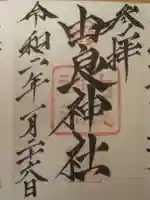 奉拝
由良神社
令和二年一月二十六日